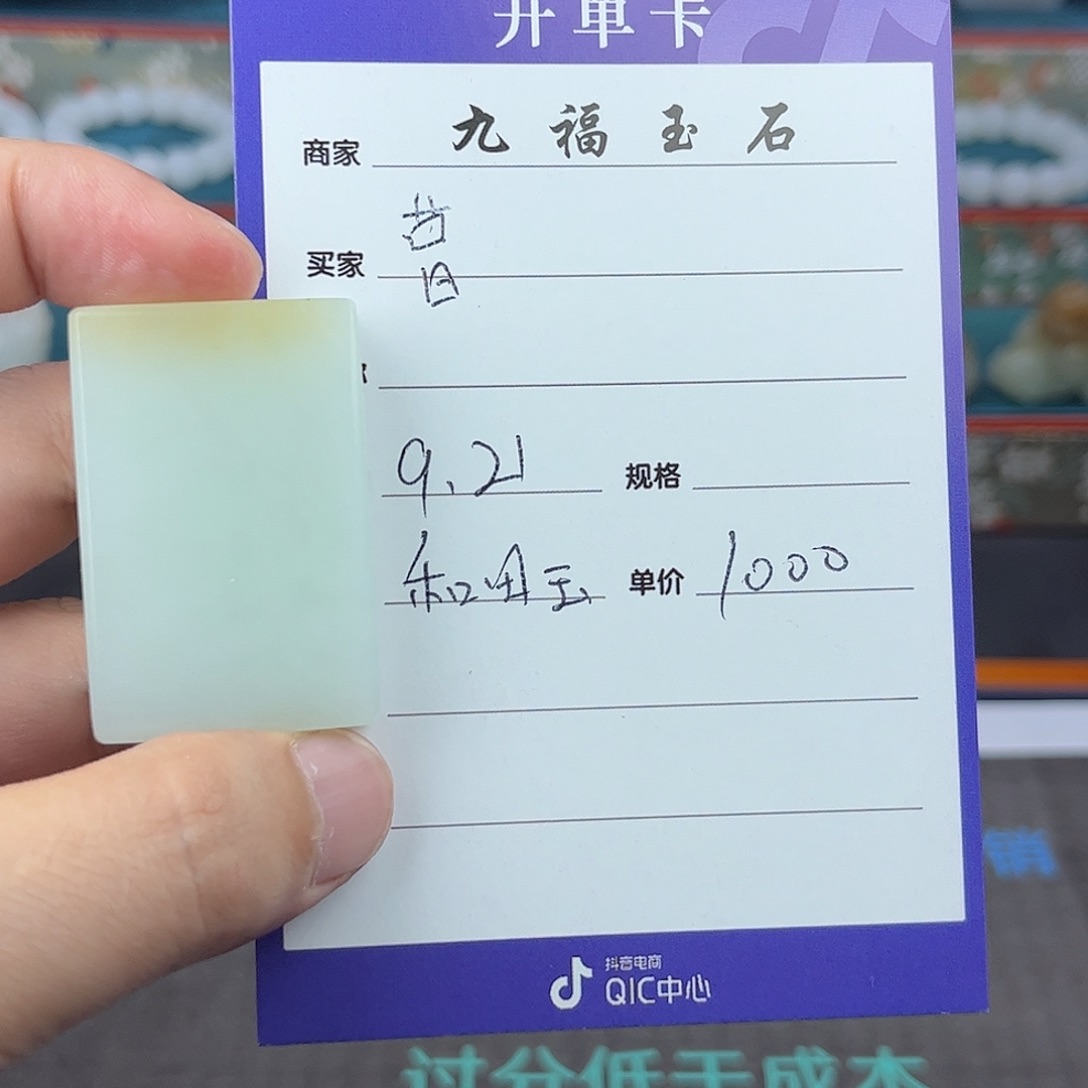 开单卡
商家 九福玉石
买家 昔日
9.21 规格
和田玉 单价 1000
抖音电商
QIC中心
销
过分低于成本